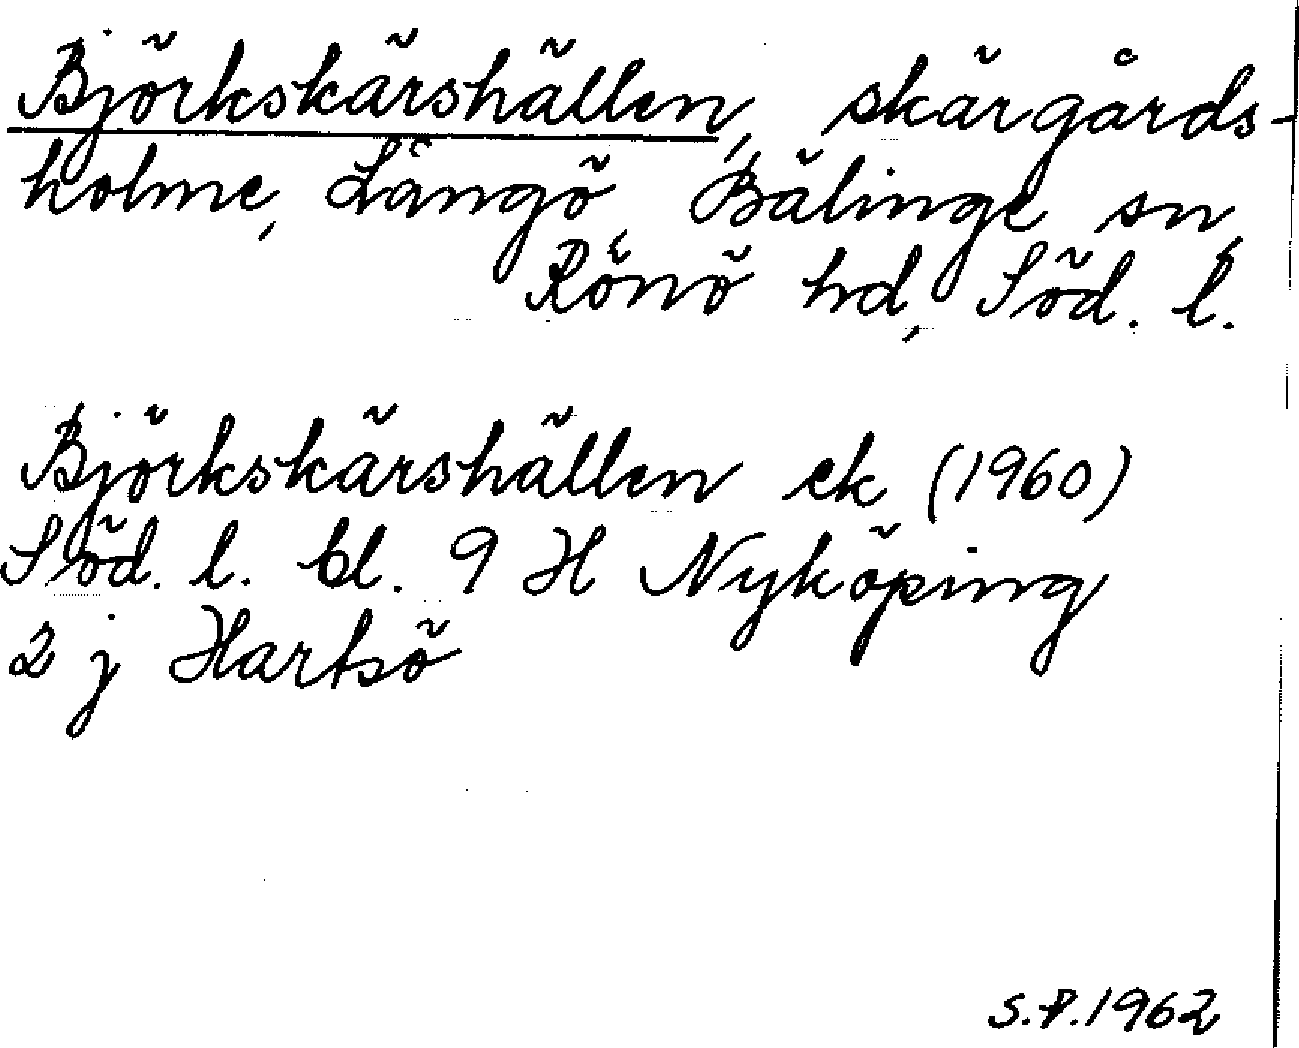 Björkskärshällen, skärgårds-
holme, Långö, Bälinge sn,
Rönö hd, Söd. l.
Björkskärshällen ek (1960)
Söd. l. bl. 9 H Nyköping
2 j Hartsö
S.P.1962